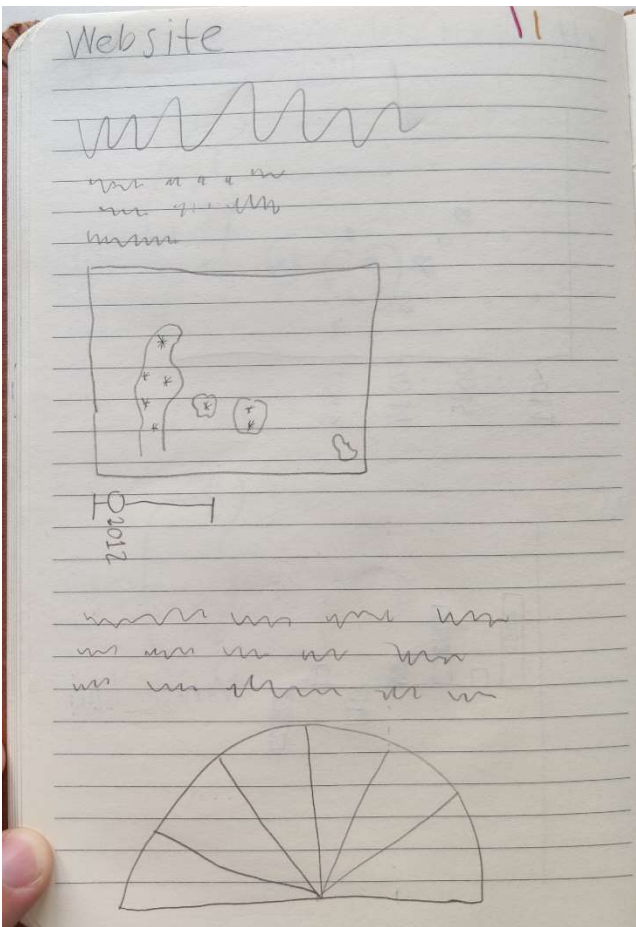 Website
2012